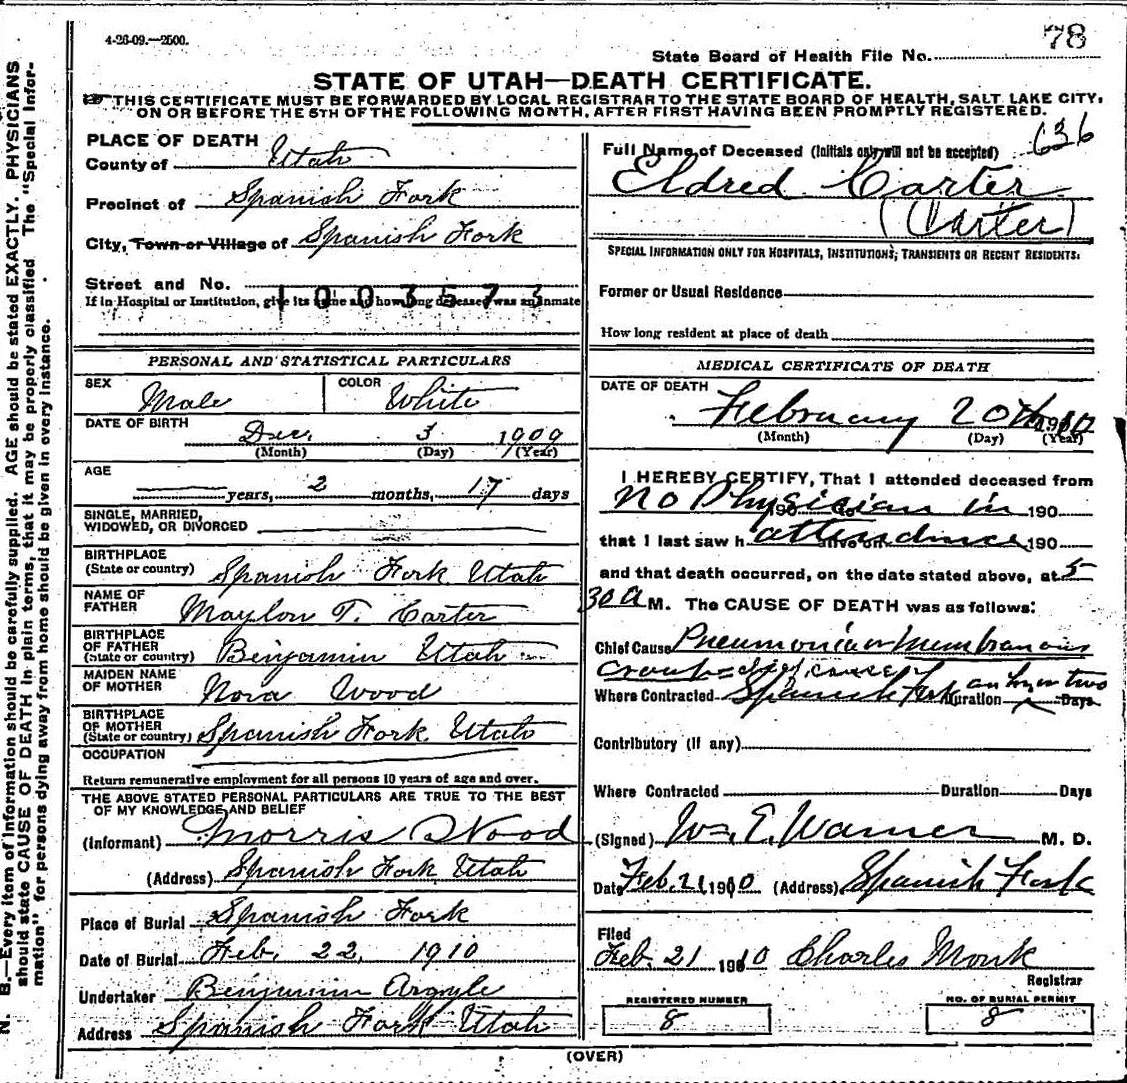 4-26-09.—2500.
78
State Board of Health File No.
STATE OF UTAH—DEATH CERTIFICATE.
THIS CERTIFICATE MUST BE FORWARDED BY LOCAL REGISTRAR TO THE STATE BOARD OF HEALTH, SALT LAKE CITY,
ON OR BEFORE THE 5TH OF THE FOLLOWING MONTH, AFTER FIRST HAVING BEEN PROMPTLY REGISTERED.
N. B.—Every item of information should be carefully supplied. AGE should be stated EXACTLY. PHYSICIANS
should state CAUSE OF DEATH in plain terms, that it may be properly classified. The "Special Infor-
mation" for persons dying away from home should be given in every instance.
PLACE OF DEATH
County of Utah
Precinct of Spanish Fork
City, Town or Village of Spanish Fork
Street and No.
1003573
If in Hospital or Institution, give its name and how long deceased was an inmate
PERSONAL AND STATISTICAL PARTICULARS
SEX Male
COLOR White
DATE OF BIRTH
Dec. 3 1909
(Month) (Day) (Year)
AGE
years, 2 months, 17 days
SINGLE, MARRIED,
WIDOWED, OR DIVORCED
BIRTHPLACE
(State or country) Spanish Fork Utah
NAME OF
FATHER Maylon T. Carter
BIRTHPLACE
OF FATHER
(State or country) Benjamin Utah
MAIDEN NAME
OF MOTHER Nora Wood
BIRTHPLACE
OF MOTHER
(State or country) Spanish Fork Utah
OCCUPATION
Return remunerative employment for all persons 10 years of age and over.
THE ABOVE STATED PERSONAL PARTICULARS ARE TRUE TO THE BEST
OF MY KNOWLEDGE AND BELIEF
(Informant) Morris Wood
(Address) Spanish Fork Utah
Place of Burial Spanish Fork
Date of Burial Feb. 22, 1910
Undertaker Benjamin Argyle
Address Spanish Fork Utah
636
Full Name of Deceased (Initials only will not be accepted)
Eldred Carter
(Carter)
SPECIAL INFORMATION ONLY FOR HOSPITALS, INSTITUTIONS, TRANSIENTS OR RECENT RESIDENTS.
Former or Usual Residence
How long resident at place of death
MEDICAL CERTIFICATE OF DEATH
DATE OF DEATH
February 20th 1910
(Month) (Day) (Year)
I HEREBY CERTIFY, That I attended deceased from
No Physician in 190
that I last saw h attendince 190
and that death occurred, on the date stated above, at 5
30 a M. The CAUSE OF DEATH was as follows:
Chief Cause Pneumonia or Membranous
croup
Where Contracted Spanish Fork Duration an hr or two Days
Contributory (if any)
Where Contracted Duration Days
(Signed) Wm. E. Warner M. D.
Date Feb. 21, 1910 (Address) Spanish Fork
Filed
Feb. 21 1910 Charles Monk
Registrar
REGISTERED NUMBER
8
NO. OF BURIAL PERMIT
8
(OVER)